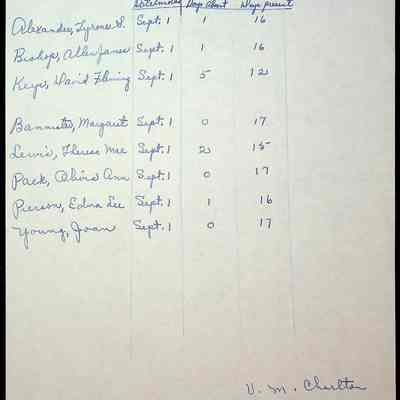 Days absent Days present
Alexander, Tyrone S. Sept. 1 1 16
Bishop, Allen James Sept. 1 1 16
Keys, David Fleming Sept. 1 5 12
Bannister, Margaret Sept. 1 0 17
Lewis, Theresa Mae Sept. 1 2 15
Pack, Ann Sept. 1 0 17
Pierson, Edna Lee Sept. 1 1 16
Young, Joan Sept. 1 0 17
V. M. Charlton